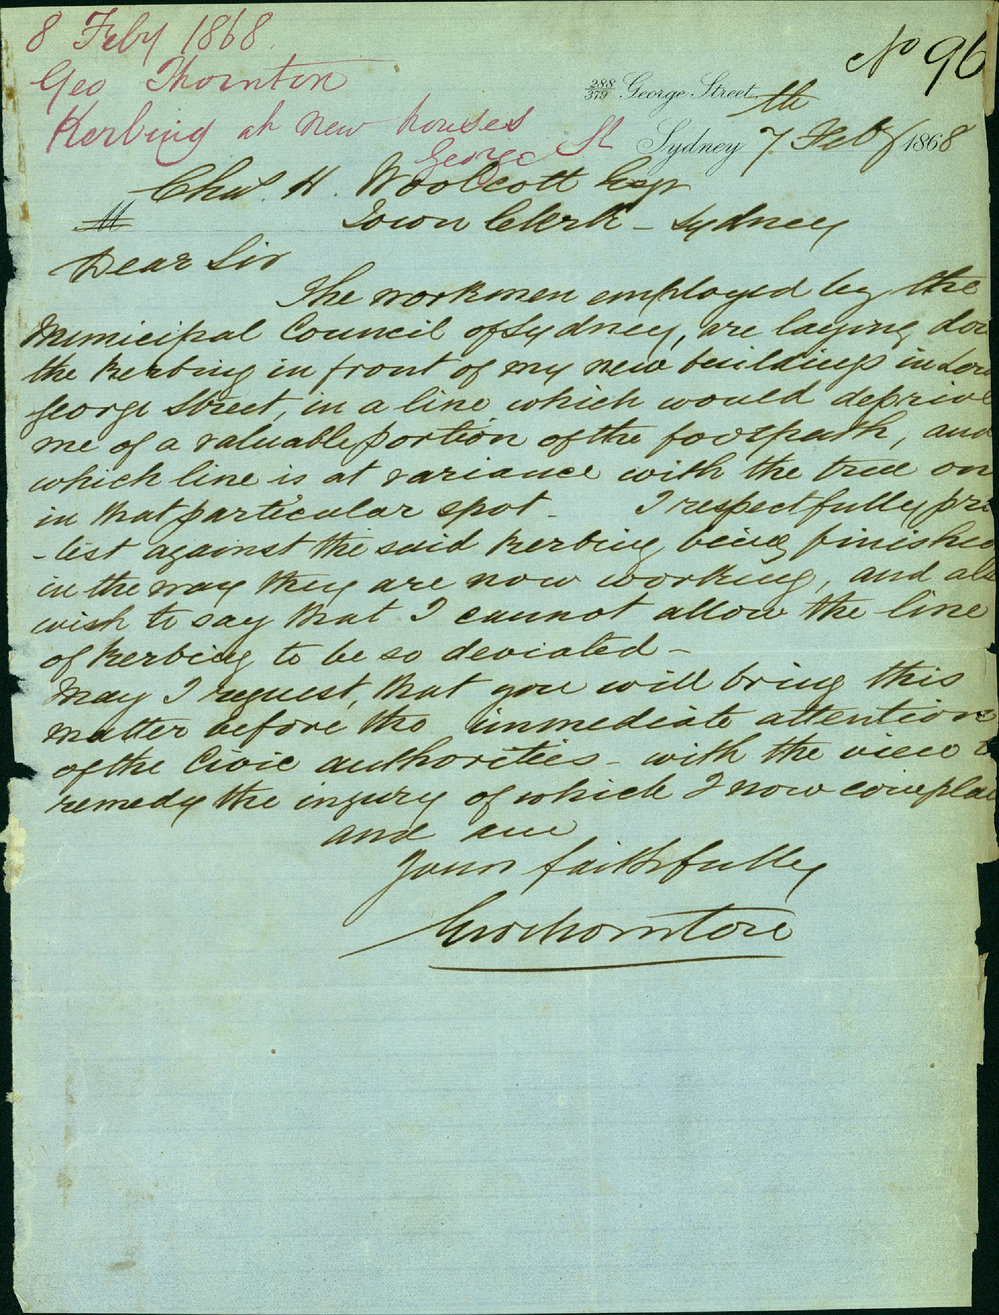 8 Feby 1868
Geo Thornton
Kerbing at new houses
George St
No 96
288/379 George Street
Sydney 7th Feby 1868
Chas. H. Woolcott Esqr
Town Clerk - Sydney
Dear Sir
The workmen employed by the
Municipal Council of Sydney, are laying dow
the kerbing in front of my new buildings in Low
George Street, in a line, which would deprive
me of a valuable portion of the footpath, and
which line is, at variance with the true on
in that particular spot - I respectfully pro
-test against the said kerbing being finished
in the way they are now working, and als
wish to say that I cannot allow the line
of kerbing to be so deviated -
May I request, that you will bring this
matter before the immediate attention
of the Civic authorities - with the view
remedy the injury of which I now complai
and am
Yours faithfully
Geo Thornton